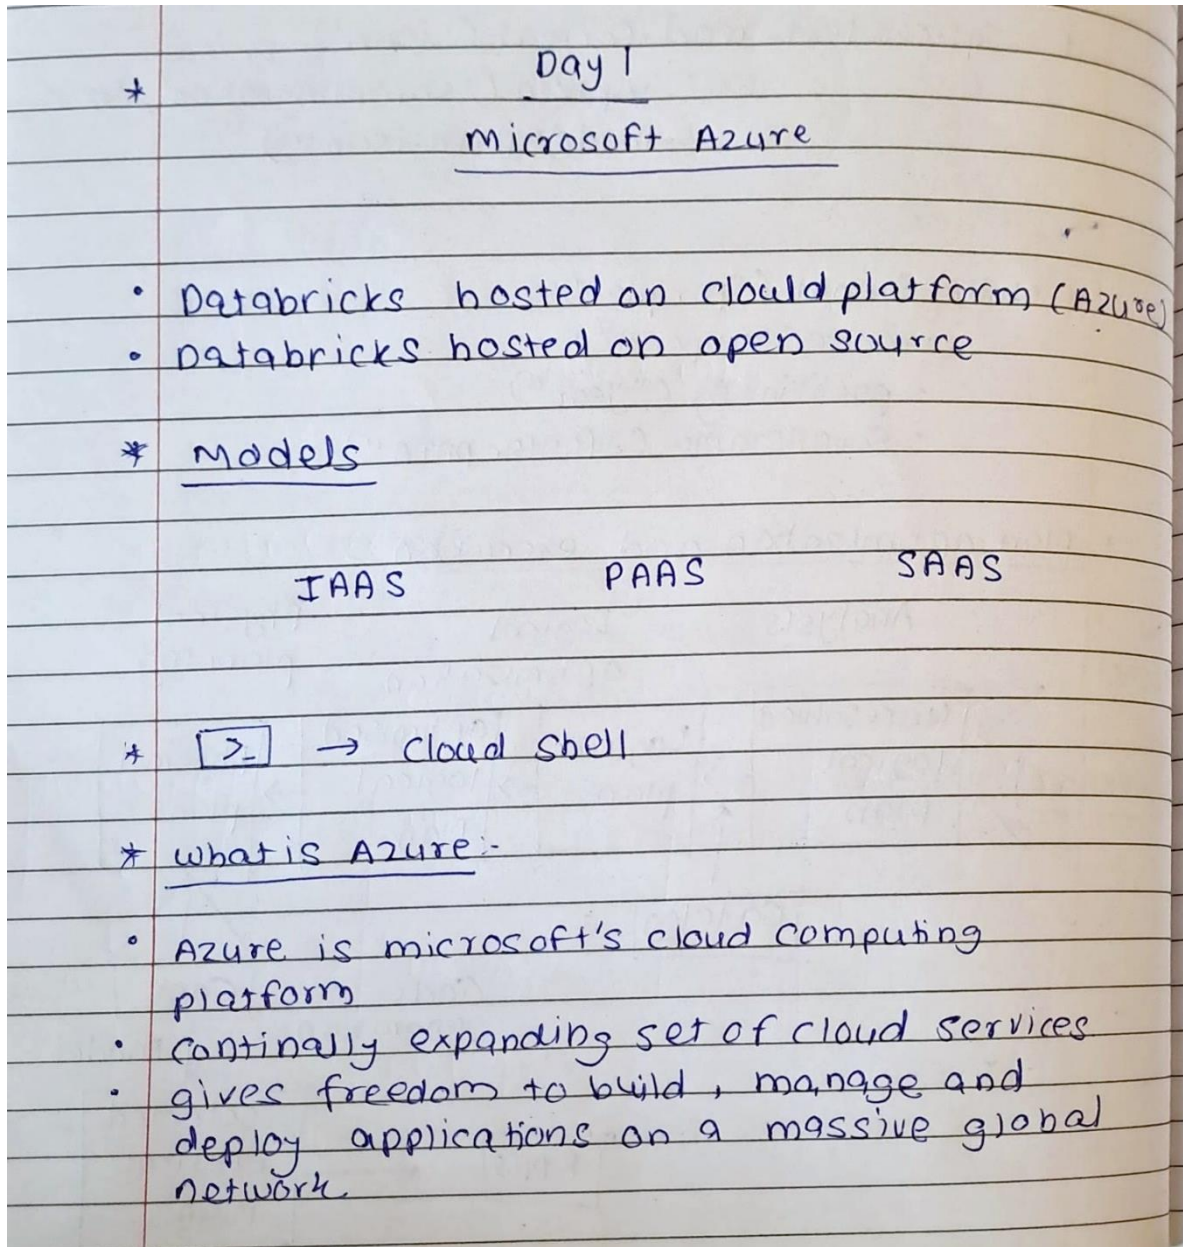 Day 1
*
Microsoft Azure
• Databricks hosted on clould platform (Azure)
• Databricks hosted on open source
* Models
IAAS PAAS SAAS
* >_ → Cloud Shell
* What is Azure:-
• Azure is microsoft's cloud computing
platform
• continally expanding set of cloud services
• gives freedom to build, manage and
deploy applications on a massive global
network.